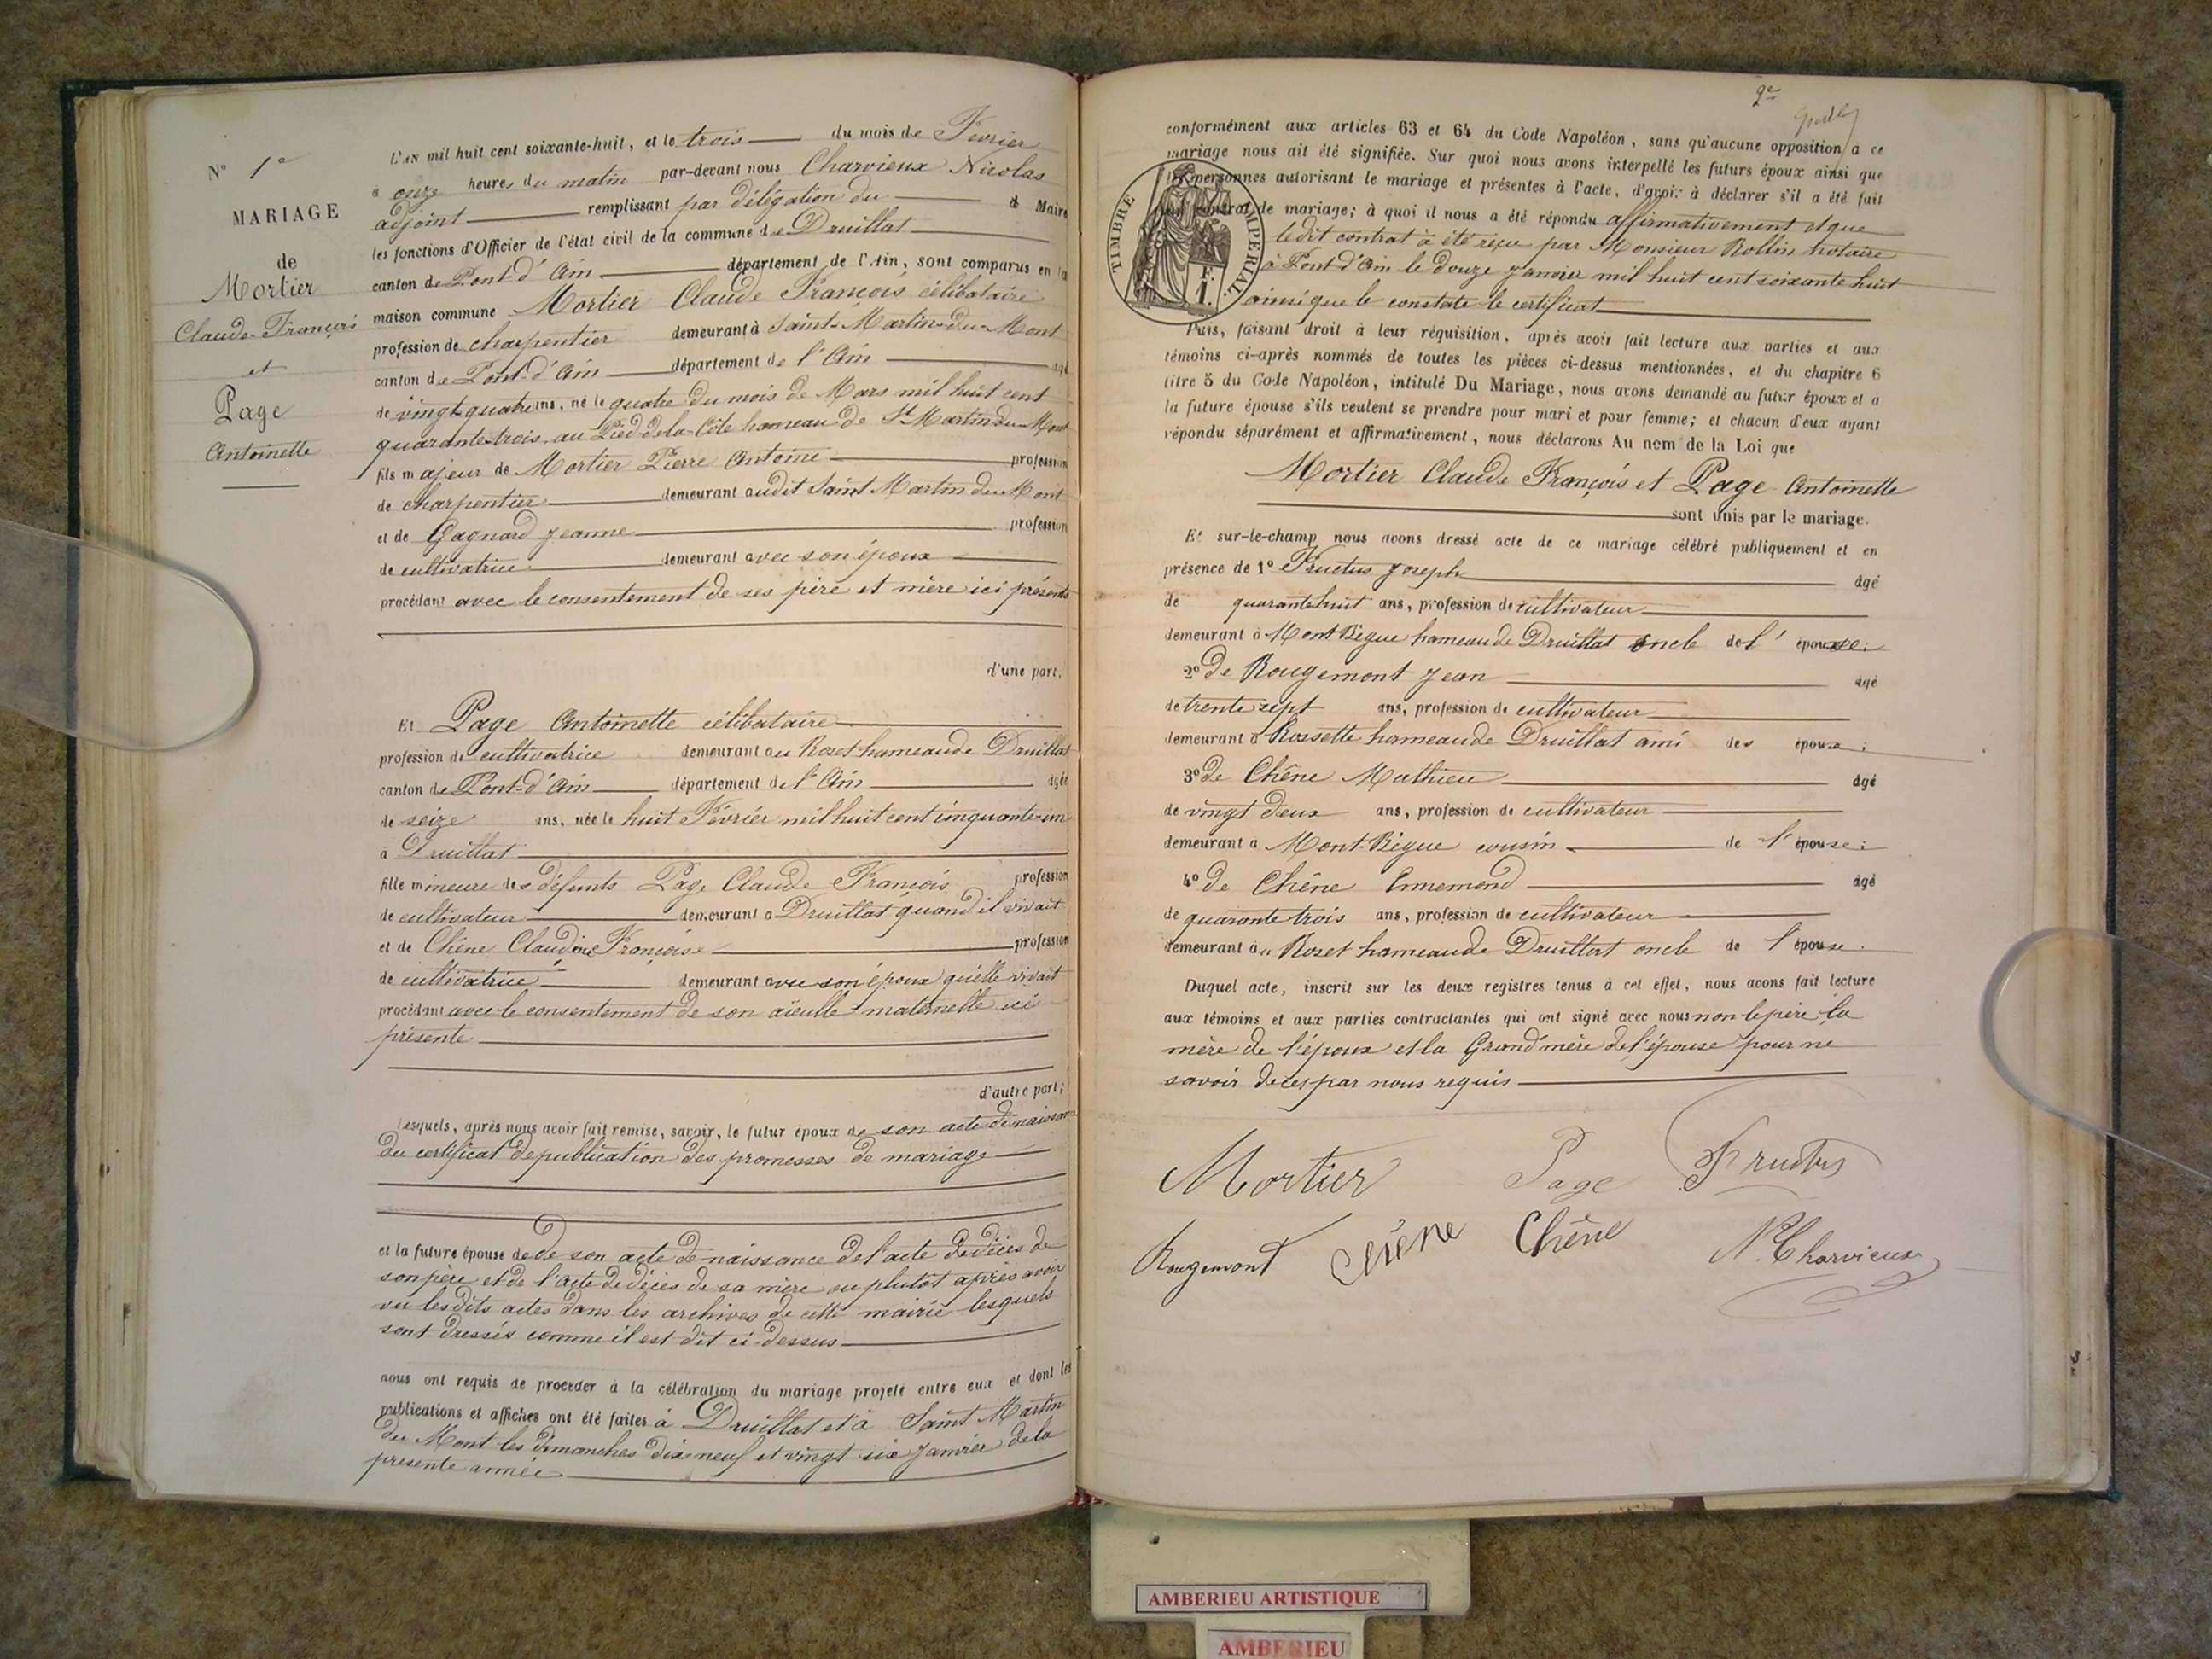 N° 1er
MARIAGE
de
Mortier
Claude François
et
Page
Antoinette
L'AN mil huit cent soixante-huit, et le trois du mois de Fevrier
à onze heures du matin par-devant nous Charvieux Nicolas
adjoint remplissant par délégation du Maire
les fonctions d'Officier de l'état civil de la commune de Druillat
canton de Pont-d'Ain département de l'Ain, sont comparus en la
maison commune Mortier Claude François célibataire
profession de charpentier demeurant à Saint-Martin-du-Mont
canton de Pont-d'Ain département de l'Ain agé
de vingt-quatre ans, né le quatre du mois de Mars mil huit cent
quarante-trois au Pied de la Côte hameau de St Martin du Mont
fils majeur de Mortier Pierre Antoine profession
de charpentier demeurant audit Saint Martin du Mont
et de Gagnard Jeanne profession
de cultivatrice demeurant avec son époux
procédant avec le consentement de ses père et mère ici présents
d'une part.
Et Page Antoinette célibataire
profession de cultivatrice demeurant au Rozet hameau de Druillat
canton de Pont-d'Ain département de l'Ain agée
de seize ans, née le huit Février mil huit cent cinquante-un
à Druillat
fille mineure des défunts Page Claude François profession
de cultivateur demeurant à Druillat quand il vivait
et de Chêne Claudine Françoise profession
de cultivatrice demeurant avec son époux qu'elle vivait
procédant avec le consentement de son aïeulle maternelle ici
présente
d'autre part;
Lesquels, après nous avoir fait remise, savoir, le futur époux de son acte de naissance
du certificat de publication des promesses de mariage
et la future épouse de de son acte de naissance de l'acte de décès de
son père et de l'acte de décès de sa mère ou plutôt après avoir
vu les dits actes dans les archives de cette mairie lesquels
sont dressés comme il est dit ci-dessus
nous ont requis de procéder à la célébration du mariage projeté entre eux et dont les
publications et affiches ont été faites à Druillat et à Saint Martin
du Mont les dimanches dix-neuf et vingt six Janvier de la
présente année
2e
conformément aux articles 63 et 64 du Code Napoléon, sans qu'aucune opposition à ce
mariage nous ait été signifiée. Sur quoi nous avons interpellé les futurs époux ainsi que
les personnes autorisant le mariage et présentes à l'acte, d'avoir à déclarer s'il a été fait
un contrat de mariage; à quoi il nous a été répondu affirmativement et que
TIMBRE IMPERIAL
ledit contrat à été reçu par Monsieur Rollin notaire
à Pont-d'Ain le douze Janvier mil huit cent soixante huit
ainsi que le constate le certificat
Puis, faisant droit à leur réquisition, après avoir fait lecture aux parties et aux
témoins ci-après nommés de toutes les pièces ci-dessus mentionnées, et du chapitre 6
titre 5 du Code Napoléon, intitulé Du Mariage, nous avons demandé au futur époux et à
la future épouse s'ils veulent se prendre pour mari et pour femme; et chacun d'eux ayant
répondu séparément et affirmativement, nous déclarons Au nom de la Loi que
Mortier Claude François et Page Antoinette
sont unis par le mariage.
Et sur-le-champ nous avons dressé acte de ce mariage célébré publiquement et en
présence de 1° Fructus Joseph âgé
de quarante huit ans, profession de cultivateur
demeurant à Mont Bègue hameau de Druillat oncle de l'épouse;
2° de Rougemont Jean agé
de trente sept ans, profession de cultivateur
demeurant à Rossette hameau de Druillat ami des époux;
3° de Chêne Mathieu âgé
de vingt deux ans, profession de cultivateur
demeurant à Mont-Bègue cousin de l'épouse;
4° de Chêne Ennemond âgé
de quarante trois ans, profession de cultivateur
demeurant au Rozet hameau de Druillat oncle de l'épouse.
Duquel acte, inscrit sur les deux registres tenus à cet effet, nous avons fait lecture
aux témoins et aux parties contractantes qui ont signé avec nous non le père la
mère de l'époux et la Grand'mère de l'épouse pour ne
savoir de ces par nous requis
Mortier Page Fructus
Rougemont Chêne Chêne N. Charvieux
AMBERIEU ARTISTIQUE
AMBERIEU